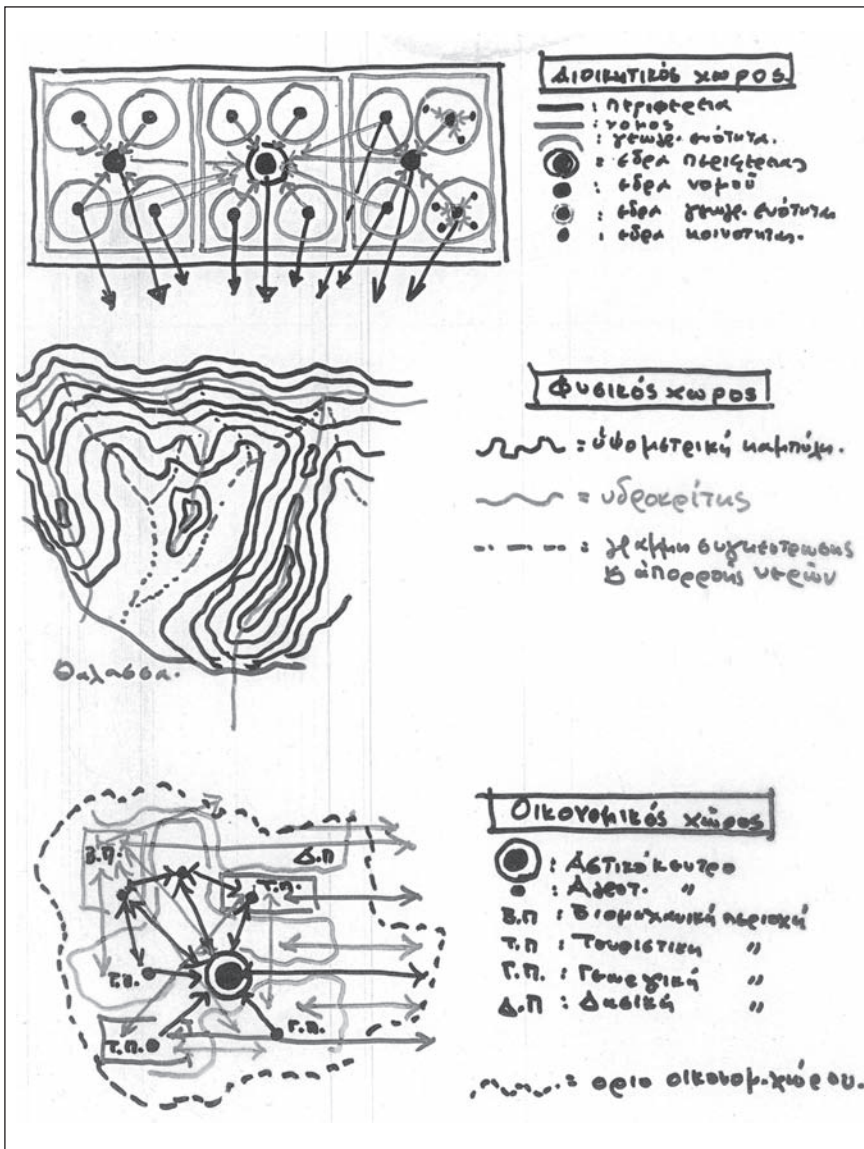 Διοικητικός χώρος
: περιφέρεια
: νομός
: γεωγρ. ενότητα.
= εδρα περιφέρειας
: εδρα νομοῦ
: εδρα γεωγρ. ενότητας
: εδρα κοινοτητας.
Φυσικός χωρος
= ὑψομετρική καμπύλη.
= υδροκρίτης
= γραμμη συγκεντρωσης
& ἀπορροής νερών
Θαλασσα.
Οικονομικός χώρος
: Αστικό κεντρο
: Αγροτ. "
Β.Π : Βιομηχανική περιοχή
Τ.Π : Τουριστικη "
Γ.Π. : Γεωργική "
Δ.Π : Δασική "
= οριο οικονομ. χώρου.
Β.Π.
Δ.Π
Τ.Π.
Γ.Π.
Τ.Π.
Γ.Π.